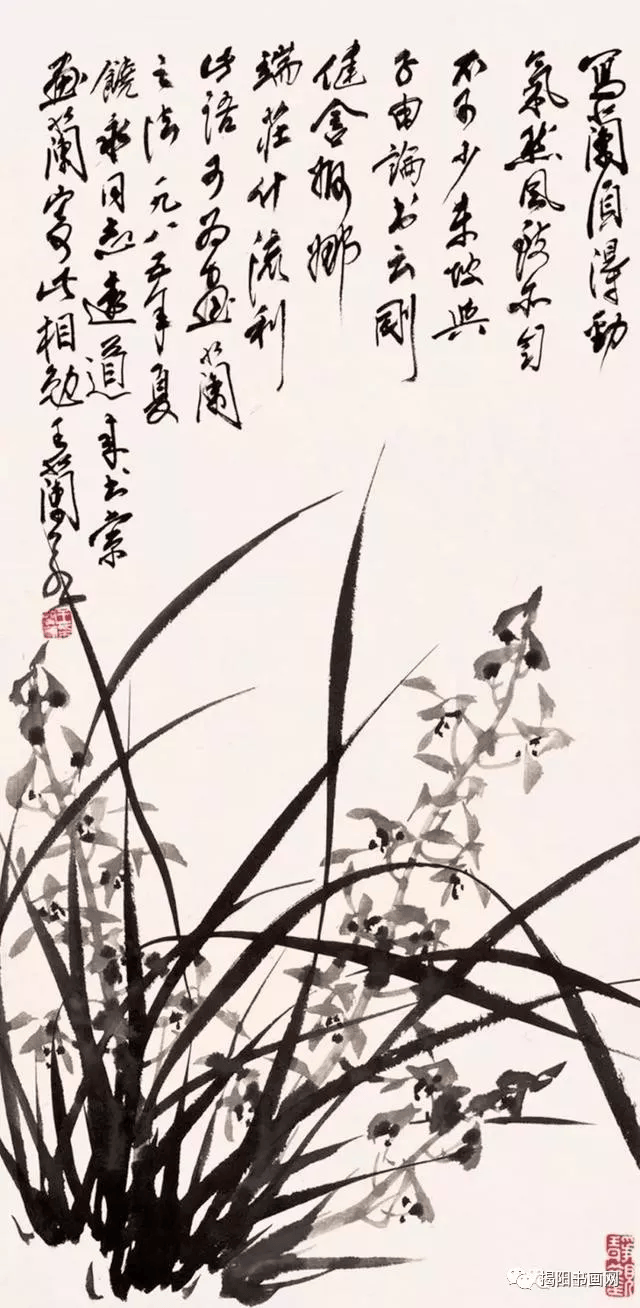 寫蘭須得勁
氣然風致亦自
不可少東坡與
子由論書云剛
健含婀娜
端莊什流利
此語可為畫蘭
之法一九八五年夏
饒同志遠道來索
畫蘭寫此相勉王蘭若
揭阳书画网